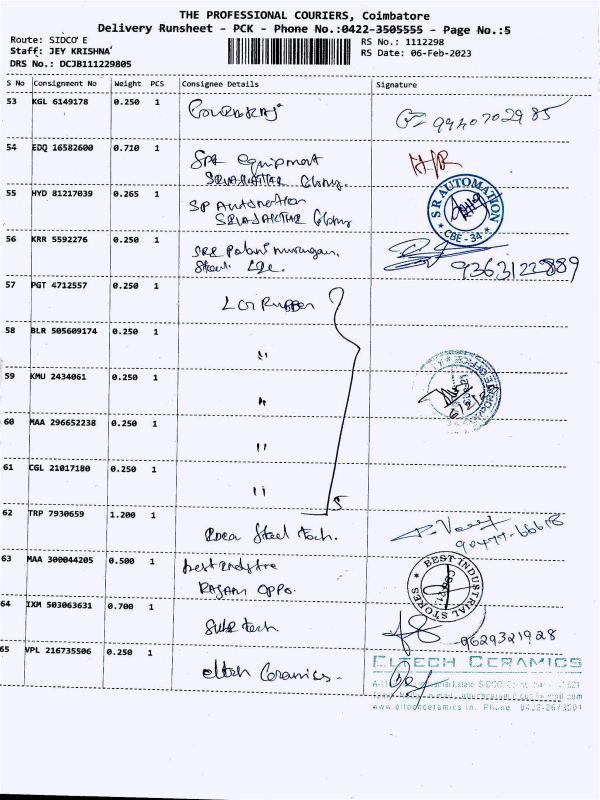 THE PROFESSIONAL COURIERS, Coimbatore
Delivery Runsheet - PCK - Phone No.:0422-3505555 - Page No.:5
Route: SIDCO E
Staff: JEY KRISHNA
DRS No.: DCJB111229805
RS No.: 1112298
RS Date: 06-Feb-2023
S No Consignment No Weight PCS Consignee Details Signature
53 KGL 6149178 0.250 1
54 EDQ 16582600 0.710 1 equipment H/R
55 HYD 81217039 0.265 1 SP Automation
S R AUTOMATION
* CBE - 34 *
56 KRR 5592276 0.250 1 Palani murugan.
9363122889
57 PGT 4712557 0.250 1 LGI Rubber
58 BLR 505609174 0.250 1 "
59 KMU 2434061 0.250 1 "
60 MAA 296652238 0.250 1 "
61 CGL 21017180 0.250 1 "
5
62 TRP 7930659 1.200 1 Steel tech.
63 MAA 300044205 0.500 1 best
RAJAM OPPO.
* BEST INDUSTRIAL STORES *
64 IXM 503063631 0.700 1 tech
9629321928
65 VPL 216735506 0.250 1 eltech Ceramics -
ELTECH CERAMICS